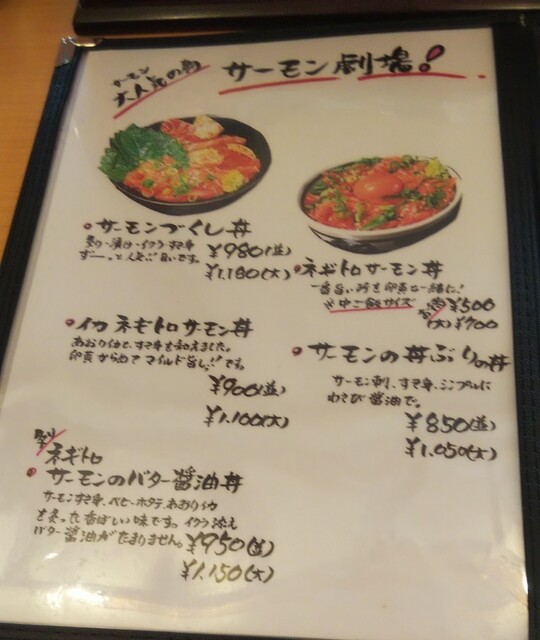 サーモン
大人気の為
サーモン劇場!
サーモンづくし丼
炙り・漬け・イクラ・すき身
ずーっと人気!旨いです。
¥980(並)
¥1,180(大)
ネギトロサーモン丼
一番旨い所を卵黄と一緒に!
※中ご飯サイズ
¥500
(大)¥700
イカネギトロサーモン丼
あおりイカと、すき身を和えました。
卵黄からめてマイルド旨し!!です。
¥900(並)
¥1,100(大)
サーモンの丼ぶりの丼
サーモン刺、すき身、シンプルに
わさび醤油で。
¥850(並)
¥1,050(大)
ネギトロ
サーモンのバター醤油丼
サーモンすき身、ベビーホタテ、あおりイカ
を炙った香ばしい味です。イクラ添え
バター醤油がたまりません。
¥950(並)
¥1,150(大)